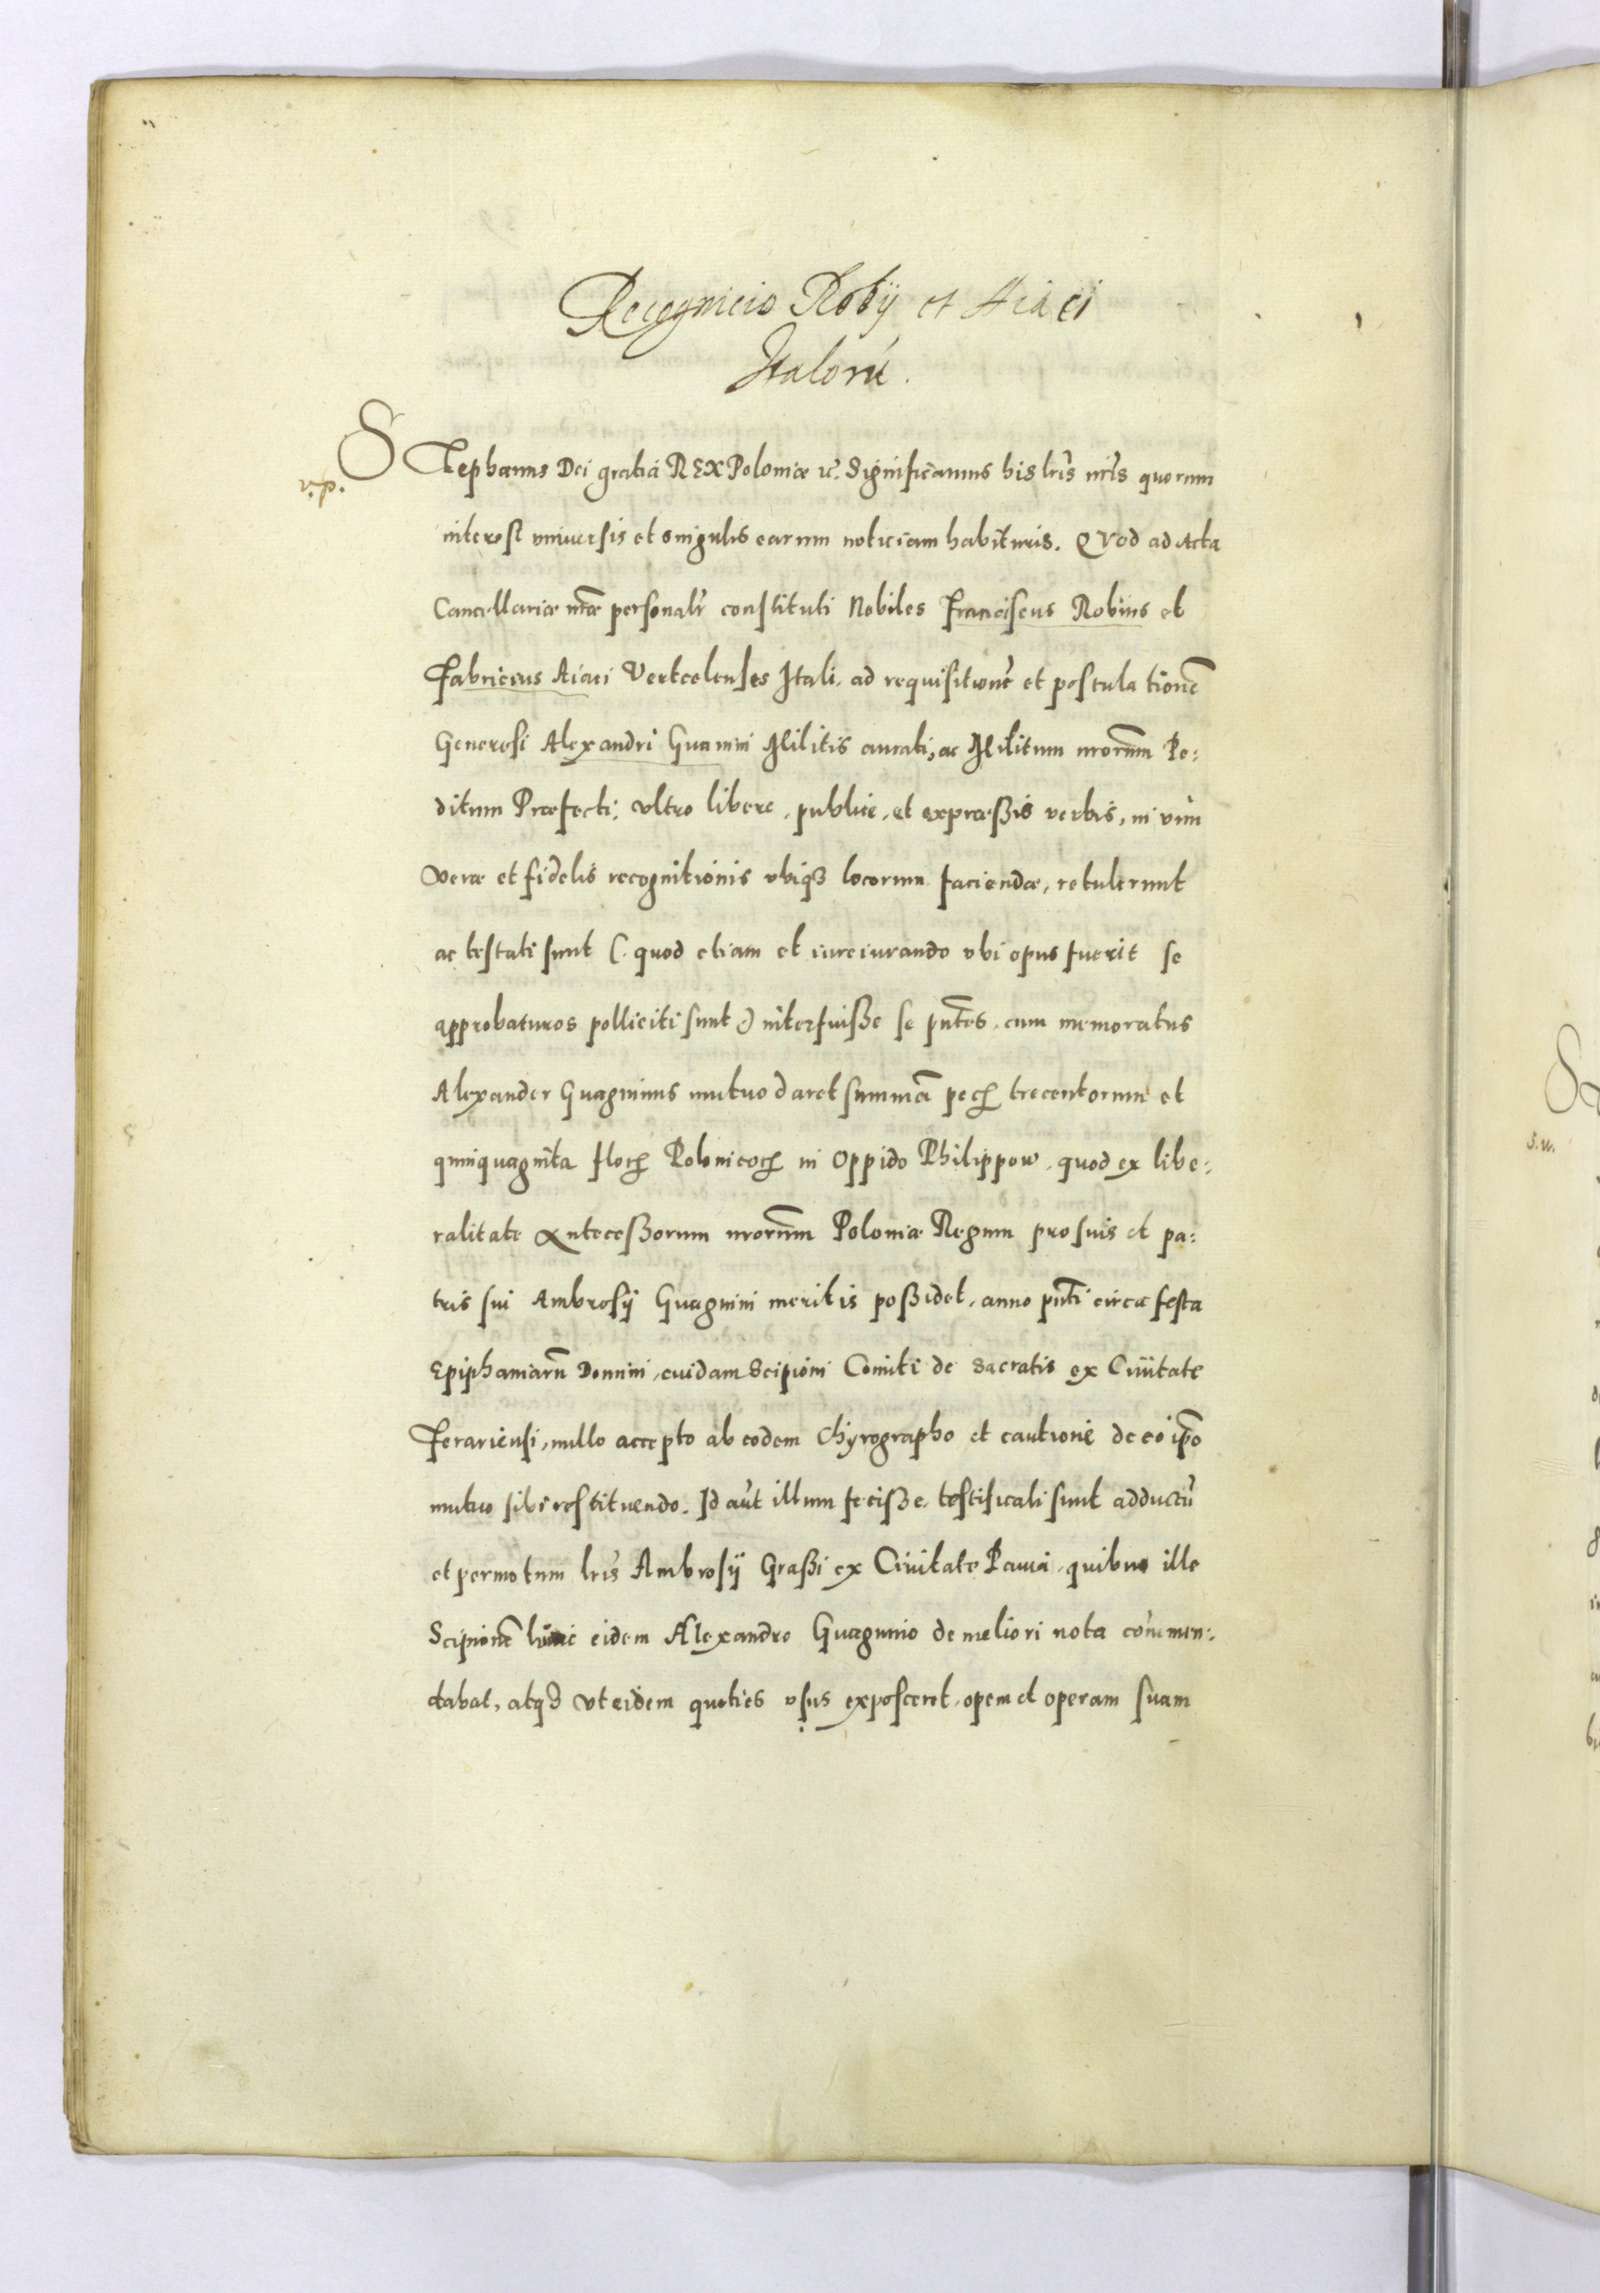 Recognicio Robij et Aiaci
Italorū.
STephanus Dei gratiâ REX Poloniæ &c. Significamus his lrīs nrīs quorum
v.p.
interest vniuersis et singulis earum noticiam habituris. QVod ad Acta
Cancellariæ nrāe personalr̄ constituti Nobiles Franciscus Robius et
Fabricius Aiaci Vertcelenses Itali, ad requisitionē et postulationē
Generosi Alexandri Guanini Militis aurati, ac Militum nrorūm Pe:
ditum Præfecti, vltro libere, publice, et expræßis verbis, in vim
veræ et fidelis recognitionis vbiqꝫ locorum faciendæ, retulerunt
ac testati sunt (: quod etiam et iureiurando vbi opus fuerit se
approbaturos polliciti sunt :) interfuiße se pn̄tes, cum memoratus
Alexander Guagninus mutuo daret summā pecꝝ trecentorum et
quinquaginta floꝝ Polonicoꝝ in Oppido Philippow, quod ex libe:
ralitate Anteceßorum nrorūm Poloniæ Regum pro suis et pa:
tris sui Ambrosij Guagnini meritis poßidet, anno pn̄ti circa festa
Epiphaniarū Domini, cuidam Scipioni Comiti de Sacratis ex Ciuitate
Ferariensi, nullo accepto ab eodem Chyrographo et cautione de eo ipō
mutuo sibi restituendo. Id aūt illum feciße, testificati sunt adductū
et permotum lrīs Ambrosij Graßi ex Ciuitate Pauia, quibus ille
Scipionē hunc eidem Alexandro Guagnino de meliori nota com̄men:
dabat, atqꝫ vt eidem quoties vsus exposceret, opem et operam suam
S.w.